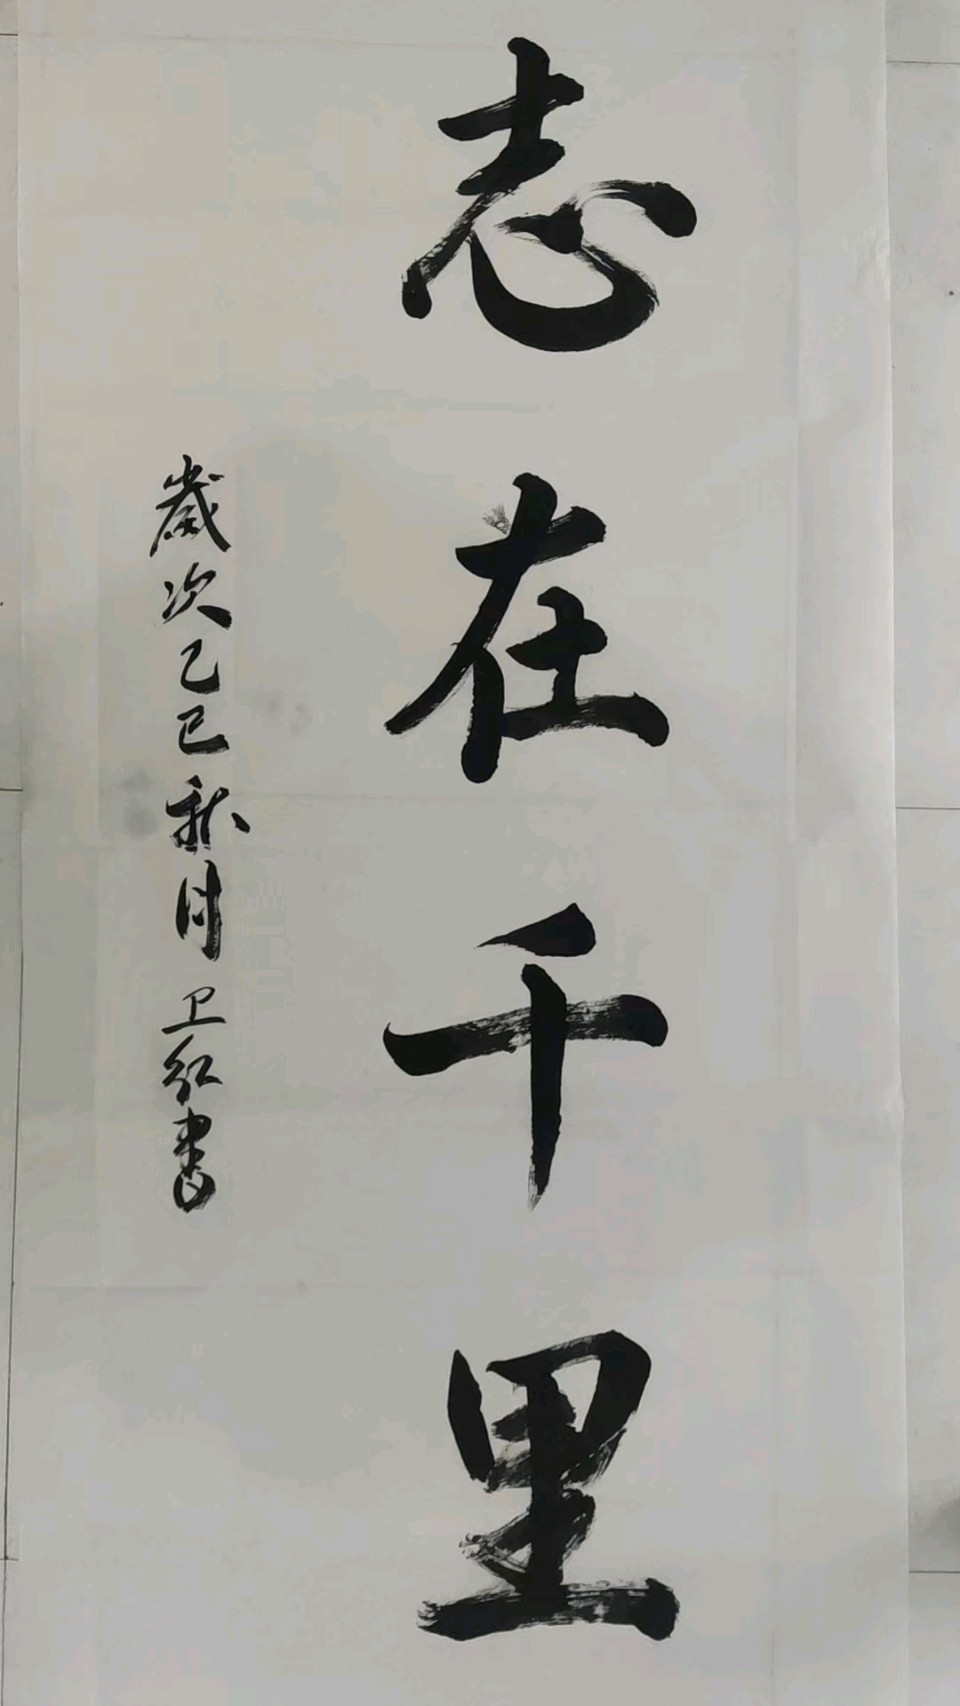 志在千里
歲次乙巳秋月卫红书